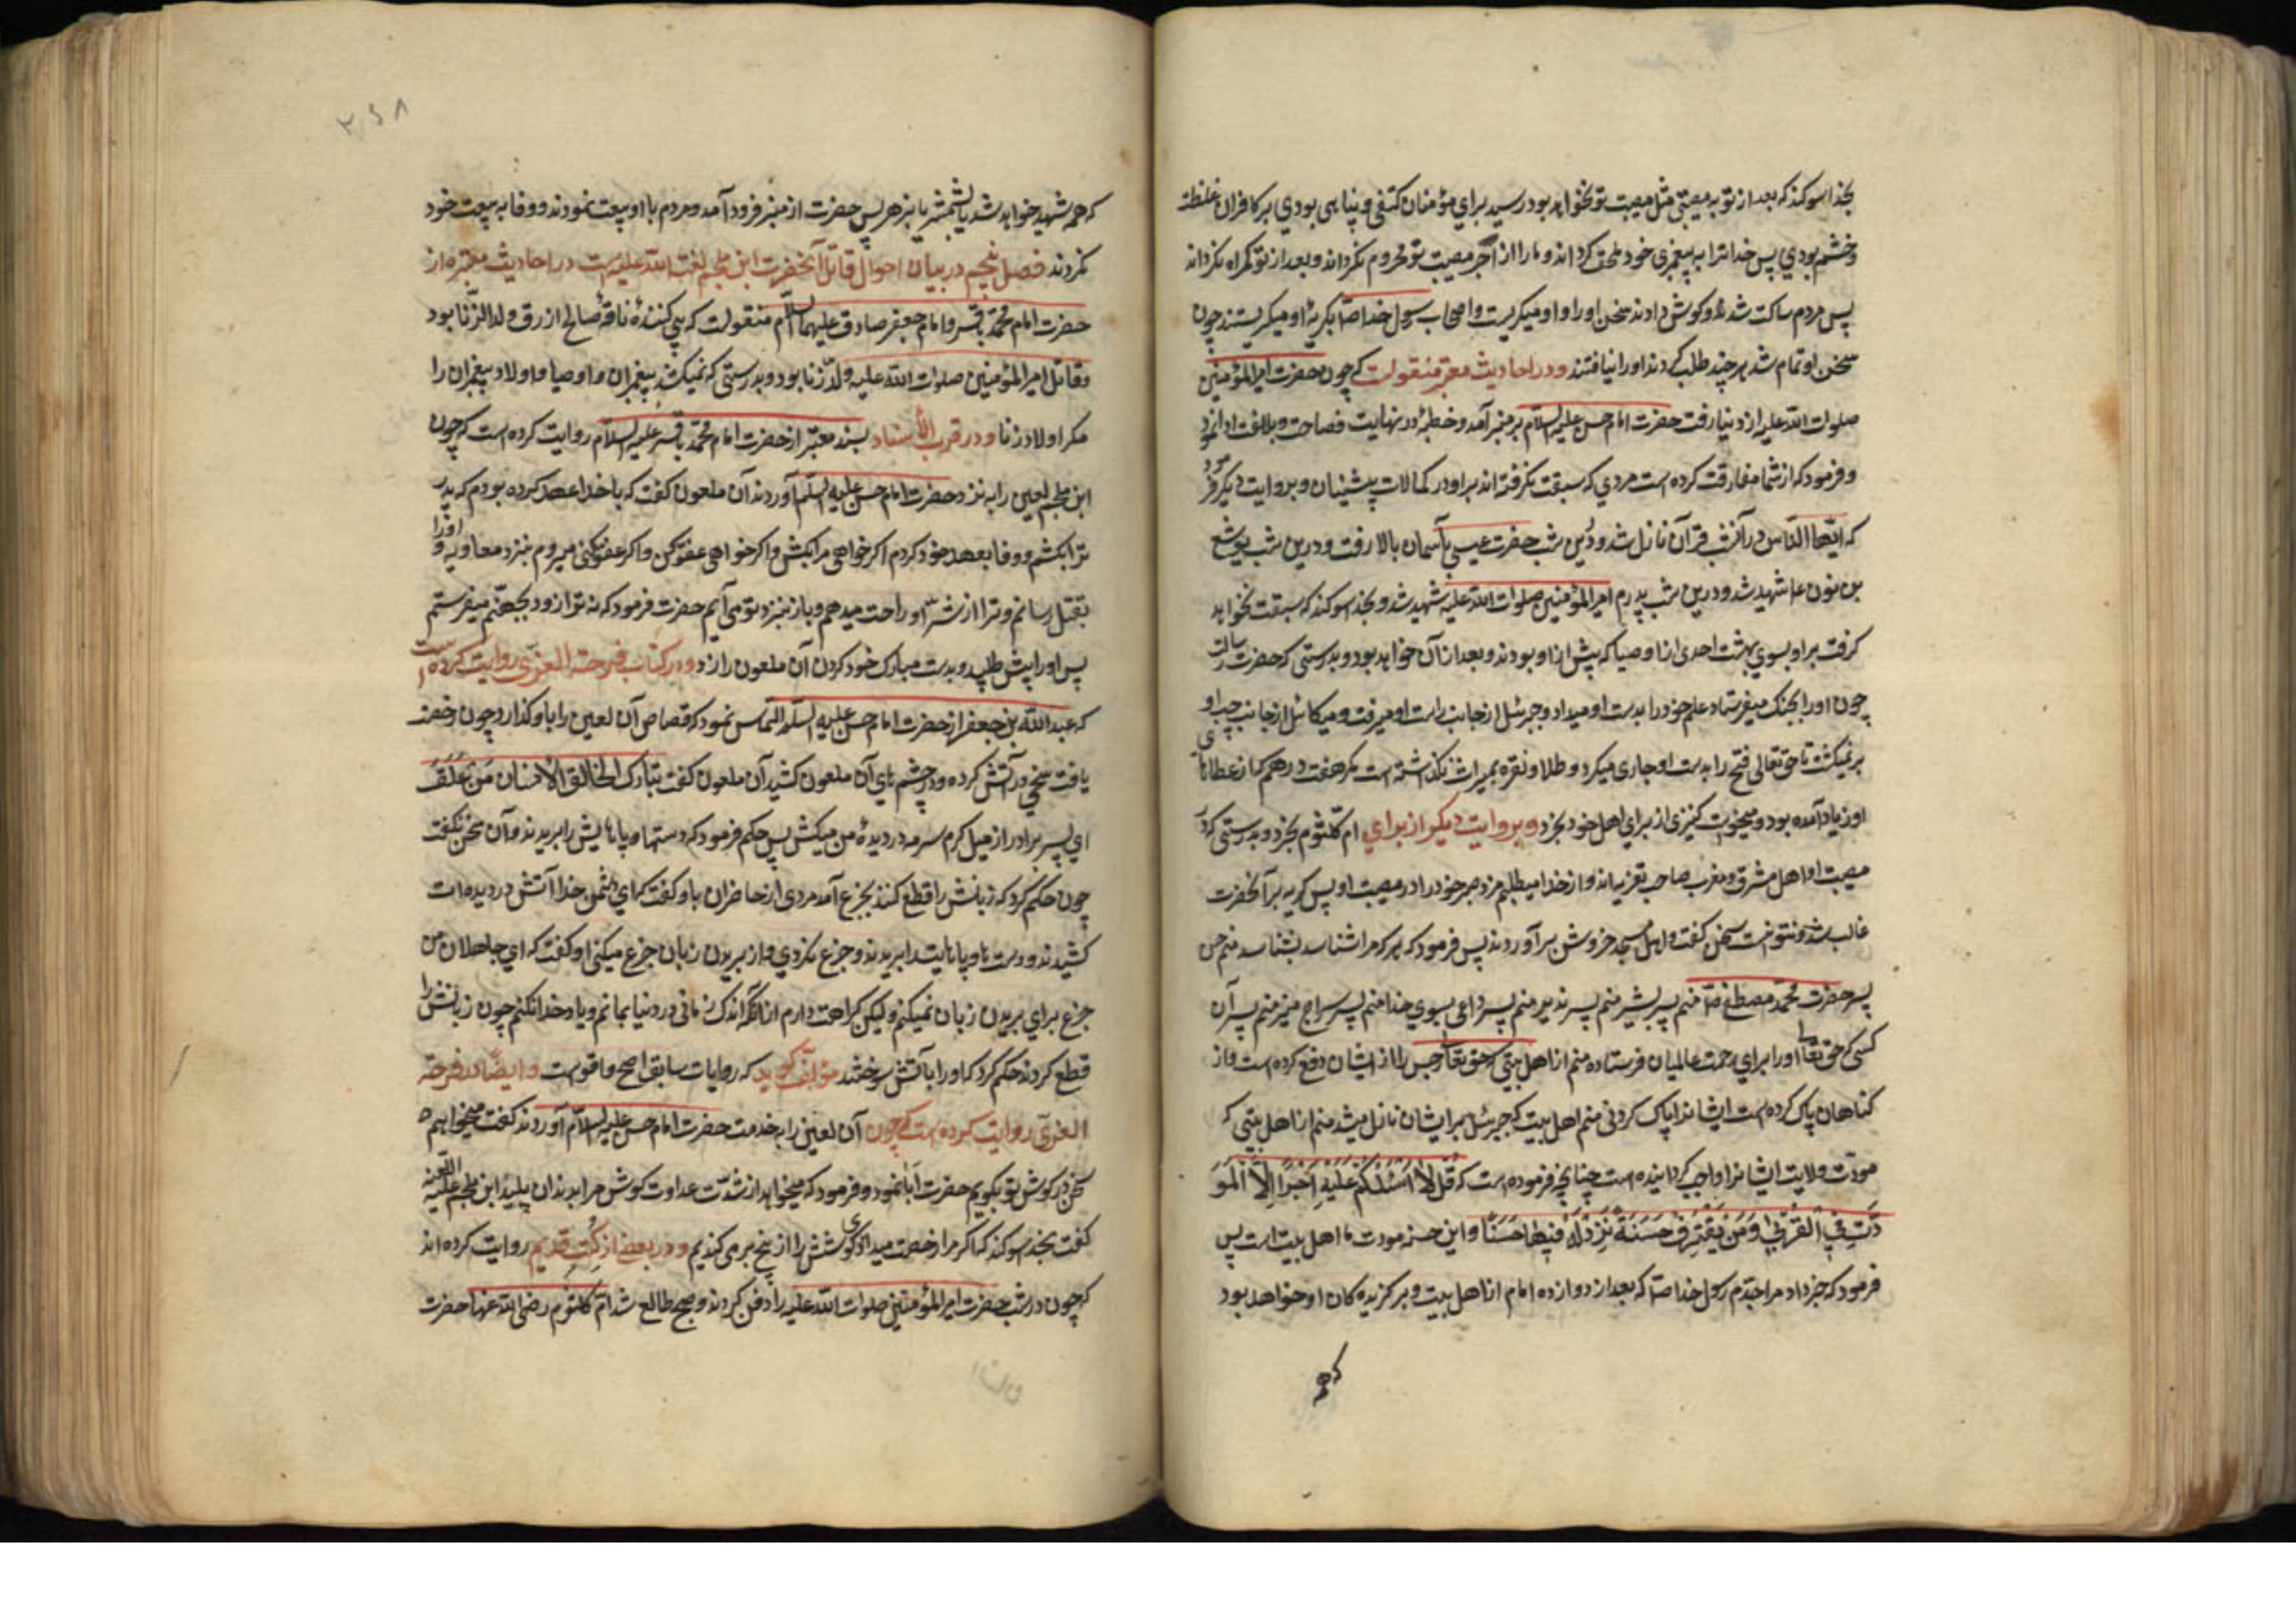 بخدا سوکند که بعد از تو به مصیبتی مثل مصیبت تو نخواهد بود رسید برای مؤمنان کتفی و پناهی بودی بر کافران غلظت
و خشم بودی پس خدا ترا به پیغمبری خود ملحق کرداند و ما را از اجر مصیبت تو محروم نکرداند و بعد از تو کمراه نکرداند
پس مردم ساکت شدند و کوش دادند سخن او را و او میکریست و اصحاب رسول خدا صلّ بکریهٔ او میکریستند چون
سخن او تمام شد هر چند طلب کردند او را نیافتند و در احادیث معتبر منقولست که چون حضرت امیر المؤمنین
صلوات الله علیه از دنیا رفت حضرت امام حسن علیه السلام بر منبر آمد و خطبهٔ در نهایت فصاحت و بلاغت ادا نمود
و فرمود که از شما مفارقت کرده است مردی که سبقت نکرفته اند بر او در کمالات پیشینیان و بروایت دیکر فرمود
که ایها الناس در آنشب قرآن نازل شد و درین شب حضرت عیسی بآسمان بالا رفت و درین شب یوشع
بن نون عا شهید شد و درین شب پدرم امیر المؤمنین صلوات الله علیه شهید شد و بخدا سوکند که سبقت نخواهد
کرفت بر او بسوی بهشت احدی از اوصیا که پیش از او بودند و بعد از آن خواهد بود و بدرستی که حضرت رسالت
چون او را بجنک میفرستاد علم خود را بدست او میداد و جبرئیل از جانب راست او میرفت و میکائیل از جانب چپ او
برنمیکشت تا حق تعالی فتح را بدست او جاری میکرد و طلا و نقره بمیراث نکذاشته است مکر هفت درهم که از عطاهای
او زیاد آمده بود و میخواست کنیزی از برای اهل خود بخرد و بروایت دیکر از برای ام کلثوم بخرد و بدرستی که در
مصیبت او اهل مشرق و مغرب صاحب تعزیه اند و از خدا میطلبم مزد صبر خود را در مصیبت او پس کریه بر آنحضرت
غالب شد و نتوانست سخن کفت و اهل مسجد خروش برآوردند پس فرمود که هر که مرا شناسد بشناسد منم حسن
پسر حضرت محمّد مصطفی صلّ منم پسر بشیر منم پسر نذیر منم پسر داعی بسوی خدا منم پسر سراج منیر منم پسر آن
کسی که حق تعا او را برای رحمت عالمیان فرستاده منم از اهل بیتی که حق تعا رجس را از ایشان دفع کرده است و از
کناهان پاک کرده است ایشانرا پاک کردنی منم اهل بیت که جبرئیل بر ایشان نازل میشد منم از اهل بیتی که
مودّت و ولایت ایشانرا واجب کردانیده است چنانچه فرموده است که قُل لا اَسْئَلُکُم عَلَیْهِ اَجْرًا اِلّا الْمَوَ
دَّتَ فِی الْقُرْبی وَ مَن یَقْتَرِفْ حَسَنَةً نَزِدْ لَهُ فِیها حُسْنًا و این حسنه مودت ما اهل بیت است پس
فرمود که خبر داد مرا جدّم رسول خدا صلّ که بعد از دوازده امام از اهل بیت و برکزیده کان او خواهد بود
که همه
۲۶۸
که همه شهید خواهد شد یا بشمشیر یا بزهر پس حضرت از منبر فرود آمد و مردم با او بیعت نمودند و وفا به بیعت خود
نکردند فصل پنجم در بیان احوال قاتل آنحضرت ابن ملجم لعنت الله علیه است در احادیث معتبره از
حضرت امام محمّد باقر و امام جعفر صادق علیهما السلام منقولست که پی کنندهٔ ناقهٔ صالح ازرق ولد الزّنا بود
و قاتل امیر المؤمنین صلوات الله علیه ولد زنا بود و بدرستی که نمیکشد پیغمبران و اوصیا و اولاد پیغمبران را
مکر اولاد زنا و در قرب الأسناد بسند معتبر از حضرت امام محمّد باقر علیه السلام روایت کرده است که چون
ابن ملجم لعین را به نزد حضرت امام حسن علیه السلم آوردند آن ملعون کفت که با خدا عهد کرده بودم که پدر
ترا بکشم و وفا بعهد خود کردم اکر خواهی مرا بکش و اکر خواهی عفو کن و اکر عفو میکنی میروم بنزد معاویه و او را
بقتل رسانم و ترا از شرّ او راحت میدهم و باز بنزد تو می آیم حضرت فرمود که نه ترا زود بجهنّم میفرستم
پس او را پیش طلبید و بدست مبارک خود کردن آن ملعون را زد و در کتاب فرحة الغری روایت کرده است
که عبد الله بن جعفر از حضرت امام حسن علیه السلم التماس نمود که قصاص آن لعین را باو کذارد چون رخصت
یافت میخی در آتش کرده و در چشم های آن ملعون کشید آن ملعون کفت تبارک الخالق الانسان من علق
ای پسر برادر از میل کرم سرمه در دیدهٔ من میکشی پس حکم فرمود که دستها و پاهایش را بریدند و آن سخن نکفت
چون حکم کرد که زبانش را قطع کنند بجزع آمد مردی از حاضران باو کفت که ای دشمن خدا آتش در دیده ات
کشیدند و دست ها و پاهایت را بریدند و جزع نکردی و از بریدن زبان جزع میکنی او کفت که ای جاهلان من
جزع برای بریدن زبان نمیکنم و لیکن کراهت دارم از آنکه اندک زمانی در دنیا بمانم و یاد خدا نکنم چون زبانش را
قطع کردند حکم کرد که او را بآتش سوختند مؤلّف کوید که روایات سابق اصح و اقوست و ایضًا در فرحة
الغریّ روایت کرده است که چون آن لعین را به خدمت حضرت امام حسن علیه السلام آوردند کفت میخواهم
سخن در کوش تو بکویم حضرت اَبا نمود و فرمود که میخواهد از شدّت عداوت کوش مرا بدندان پلید ابن ملجم علیه اللعنه
کفت بخدا سوکند که اکر مرا رخصت میداد کوشش را از بیخ برمی کندیم و در بعض از کُتُبِ قدیم روایت کرده اند
که چون در شب حضرت امیر المؤمنین صلوات الله علیه را دفن کردند و صبح طالع شد امّ کلثوم رضی الله عنها حضرت